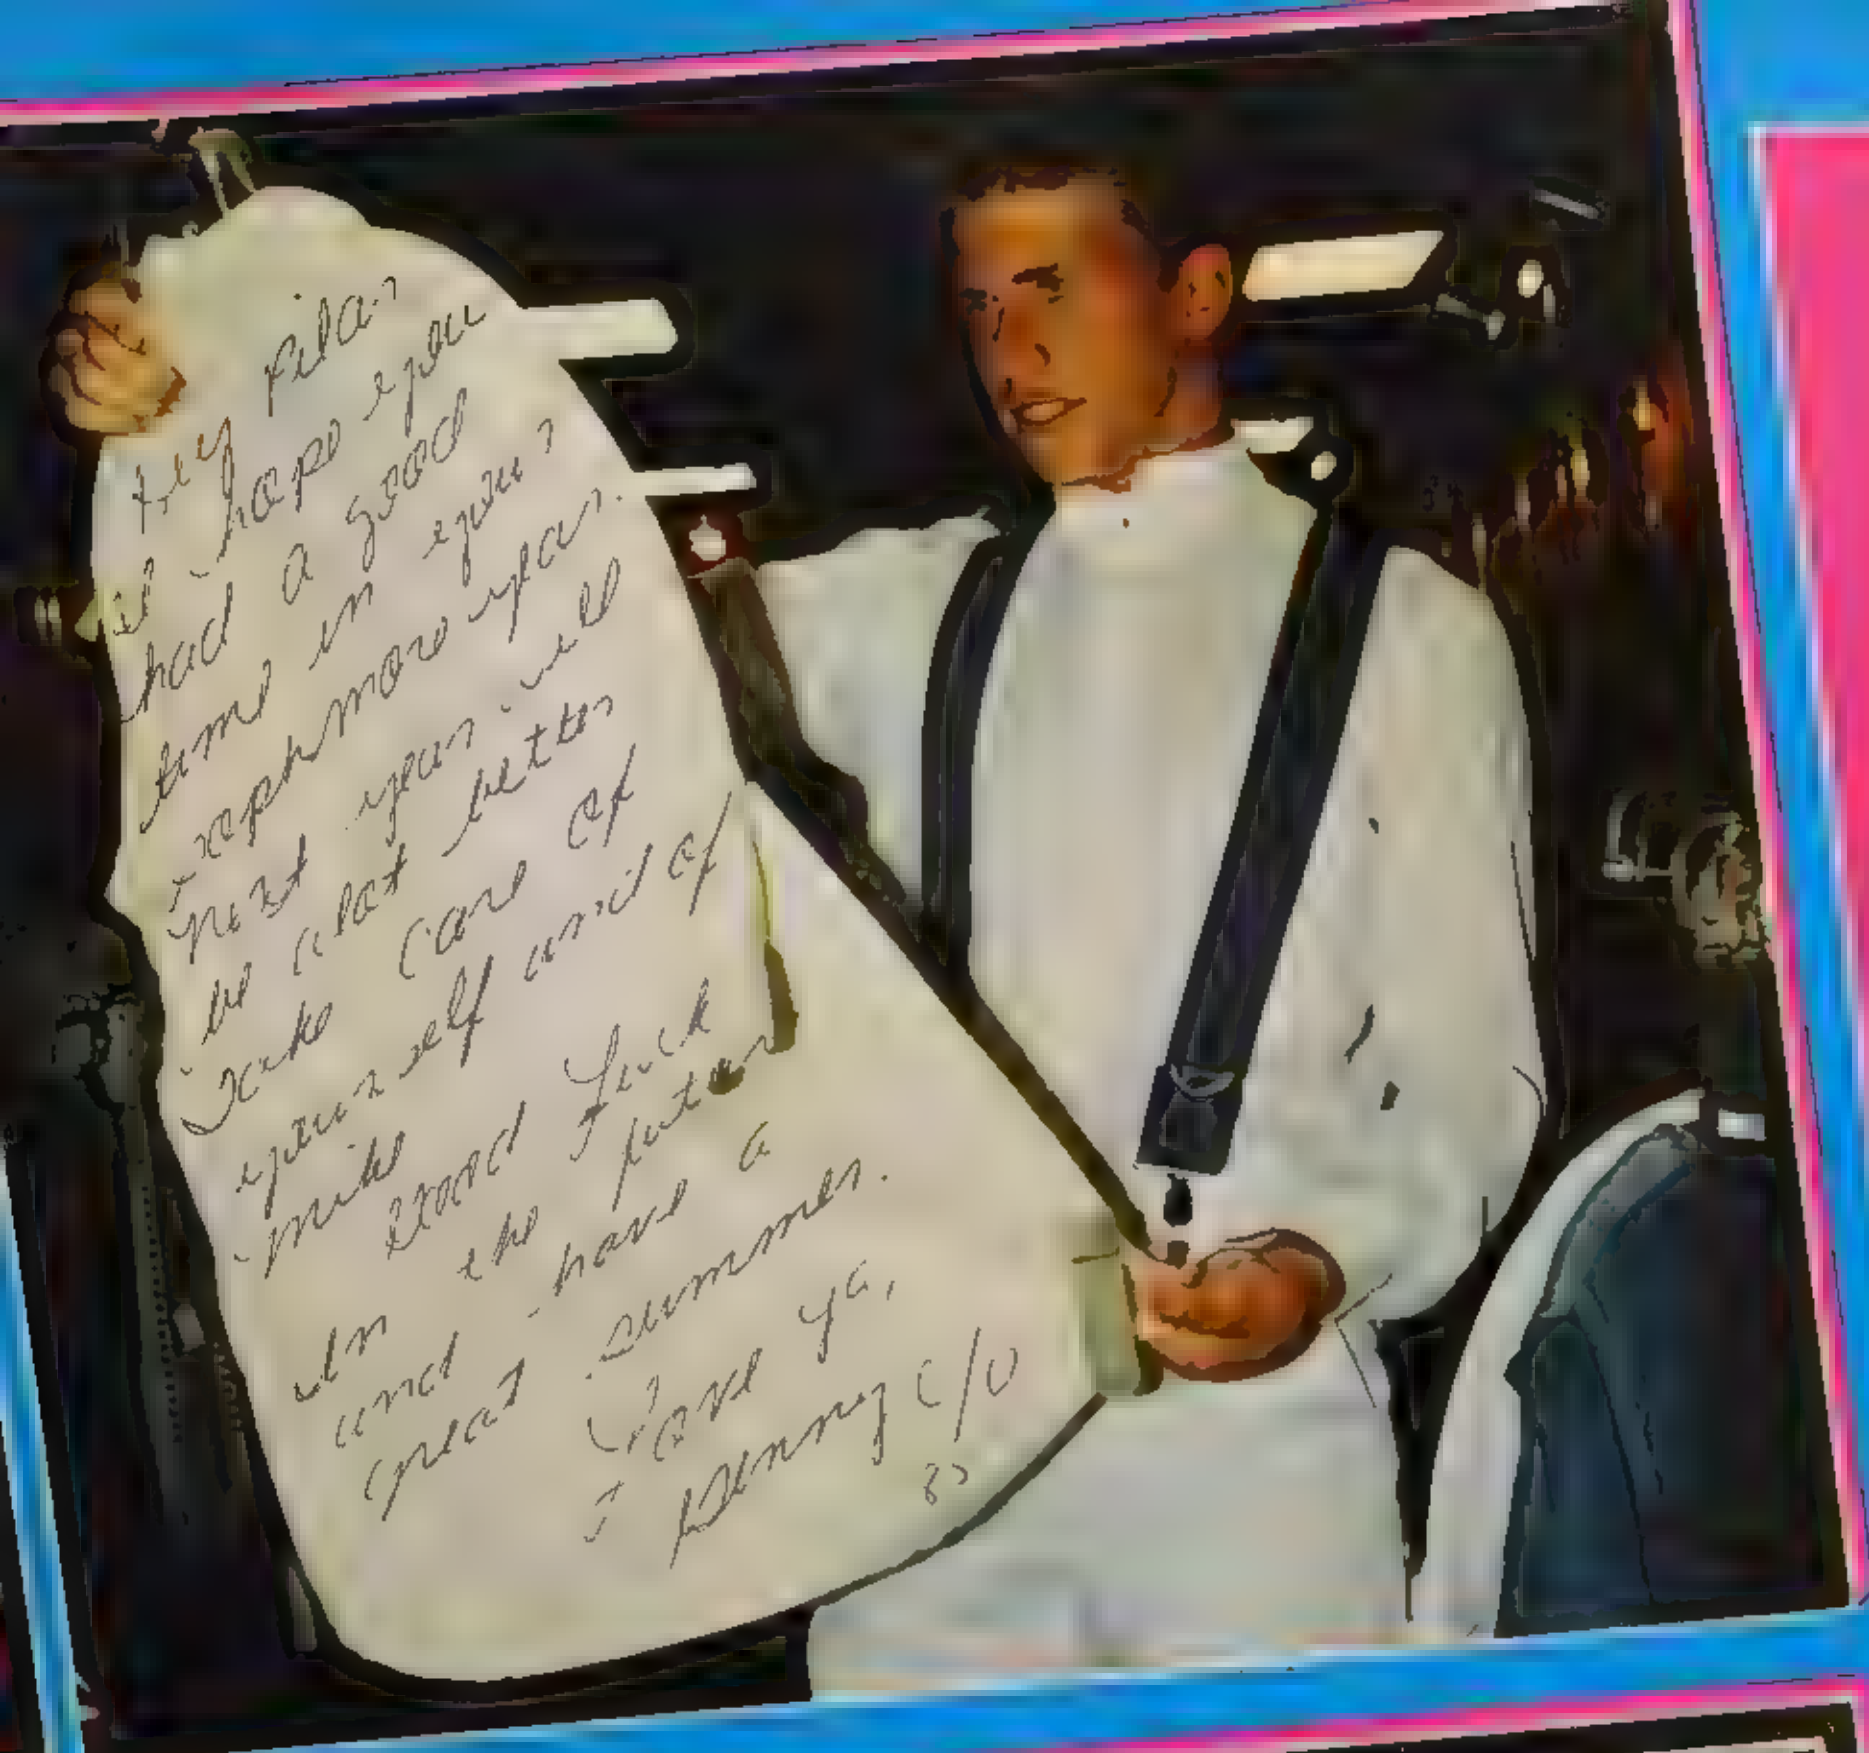 Hey Pilar
I hope you
had a good
time in your
sophmore year.
Next year will
be alot better
Take care of
yourself and of
mike
Good Luck
In the futur
and have a
great summer.
Love ya,
Benny c/o